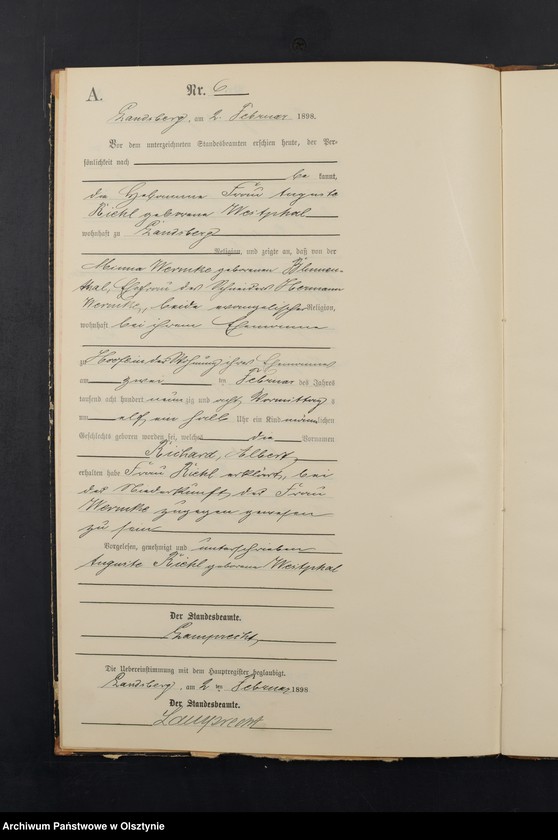 A.
Nr. 6
Landsberg, am 2. Februar 1898.
Vor dem unterzeichneten Standesbeamten erschien heute, der Per-
sönlichkeit nach
be kannt,
die Hebamme Frau Auguste
Riehl geborene Westphal
wohnhaft zu Landsberg
Religion, und zeigte an, daß von der
Minna Wermke geborenen Blumen-
thal, Ehefrau des Schneiders Hermann
Wermke, beide evangelischer Religion,
wohnhaft bei ihrem Ehemanne
zu in der Wohnung ihres Ehemannes
am zwei ten Februar des Jahres
tausend acht hundert neunzig und acht Vormittags
um elf ein halb Uhr ein Kind männlichen
Geschlechts geboren worden sei, welches die Vornamen
Richard, Albert
erhalten habe Frau Riehl erklärt, bei
der Niederkunft der Frau
Wermke zugegen gewesen
zu sein
Vorgelesen, genehmigt und unterschrieben
Auguste Riehl geborene Westphal
Der Standesbeamte.
Lamprecht
Die Uebereinstimmung mit dem Hauptregister beglaubigt.
Landsberg, am 2 ten Februar 1898
Der Standesbeamte.
Lamprecht
Archiwum Państwowe w Olsztynie